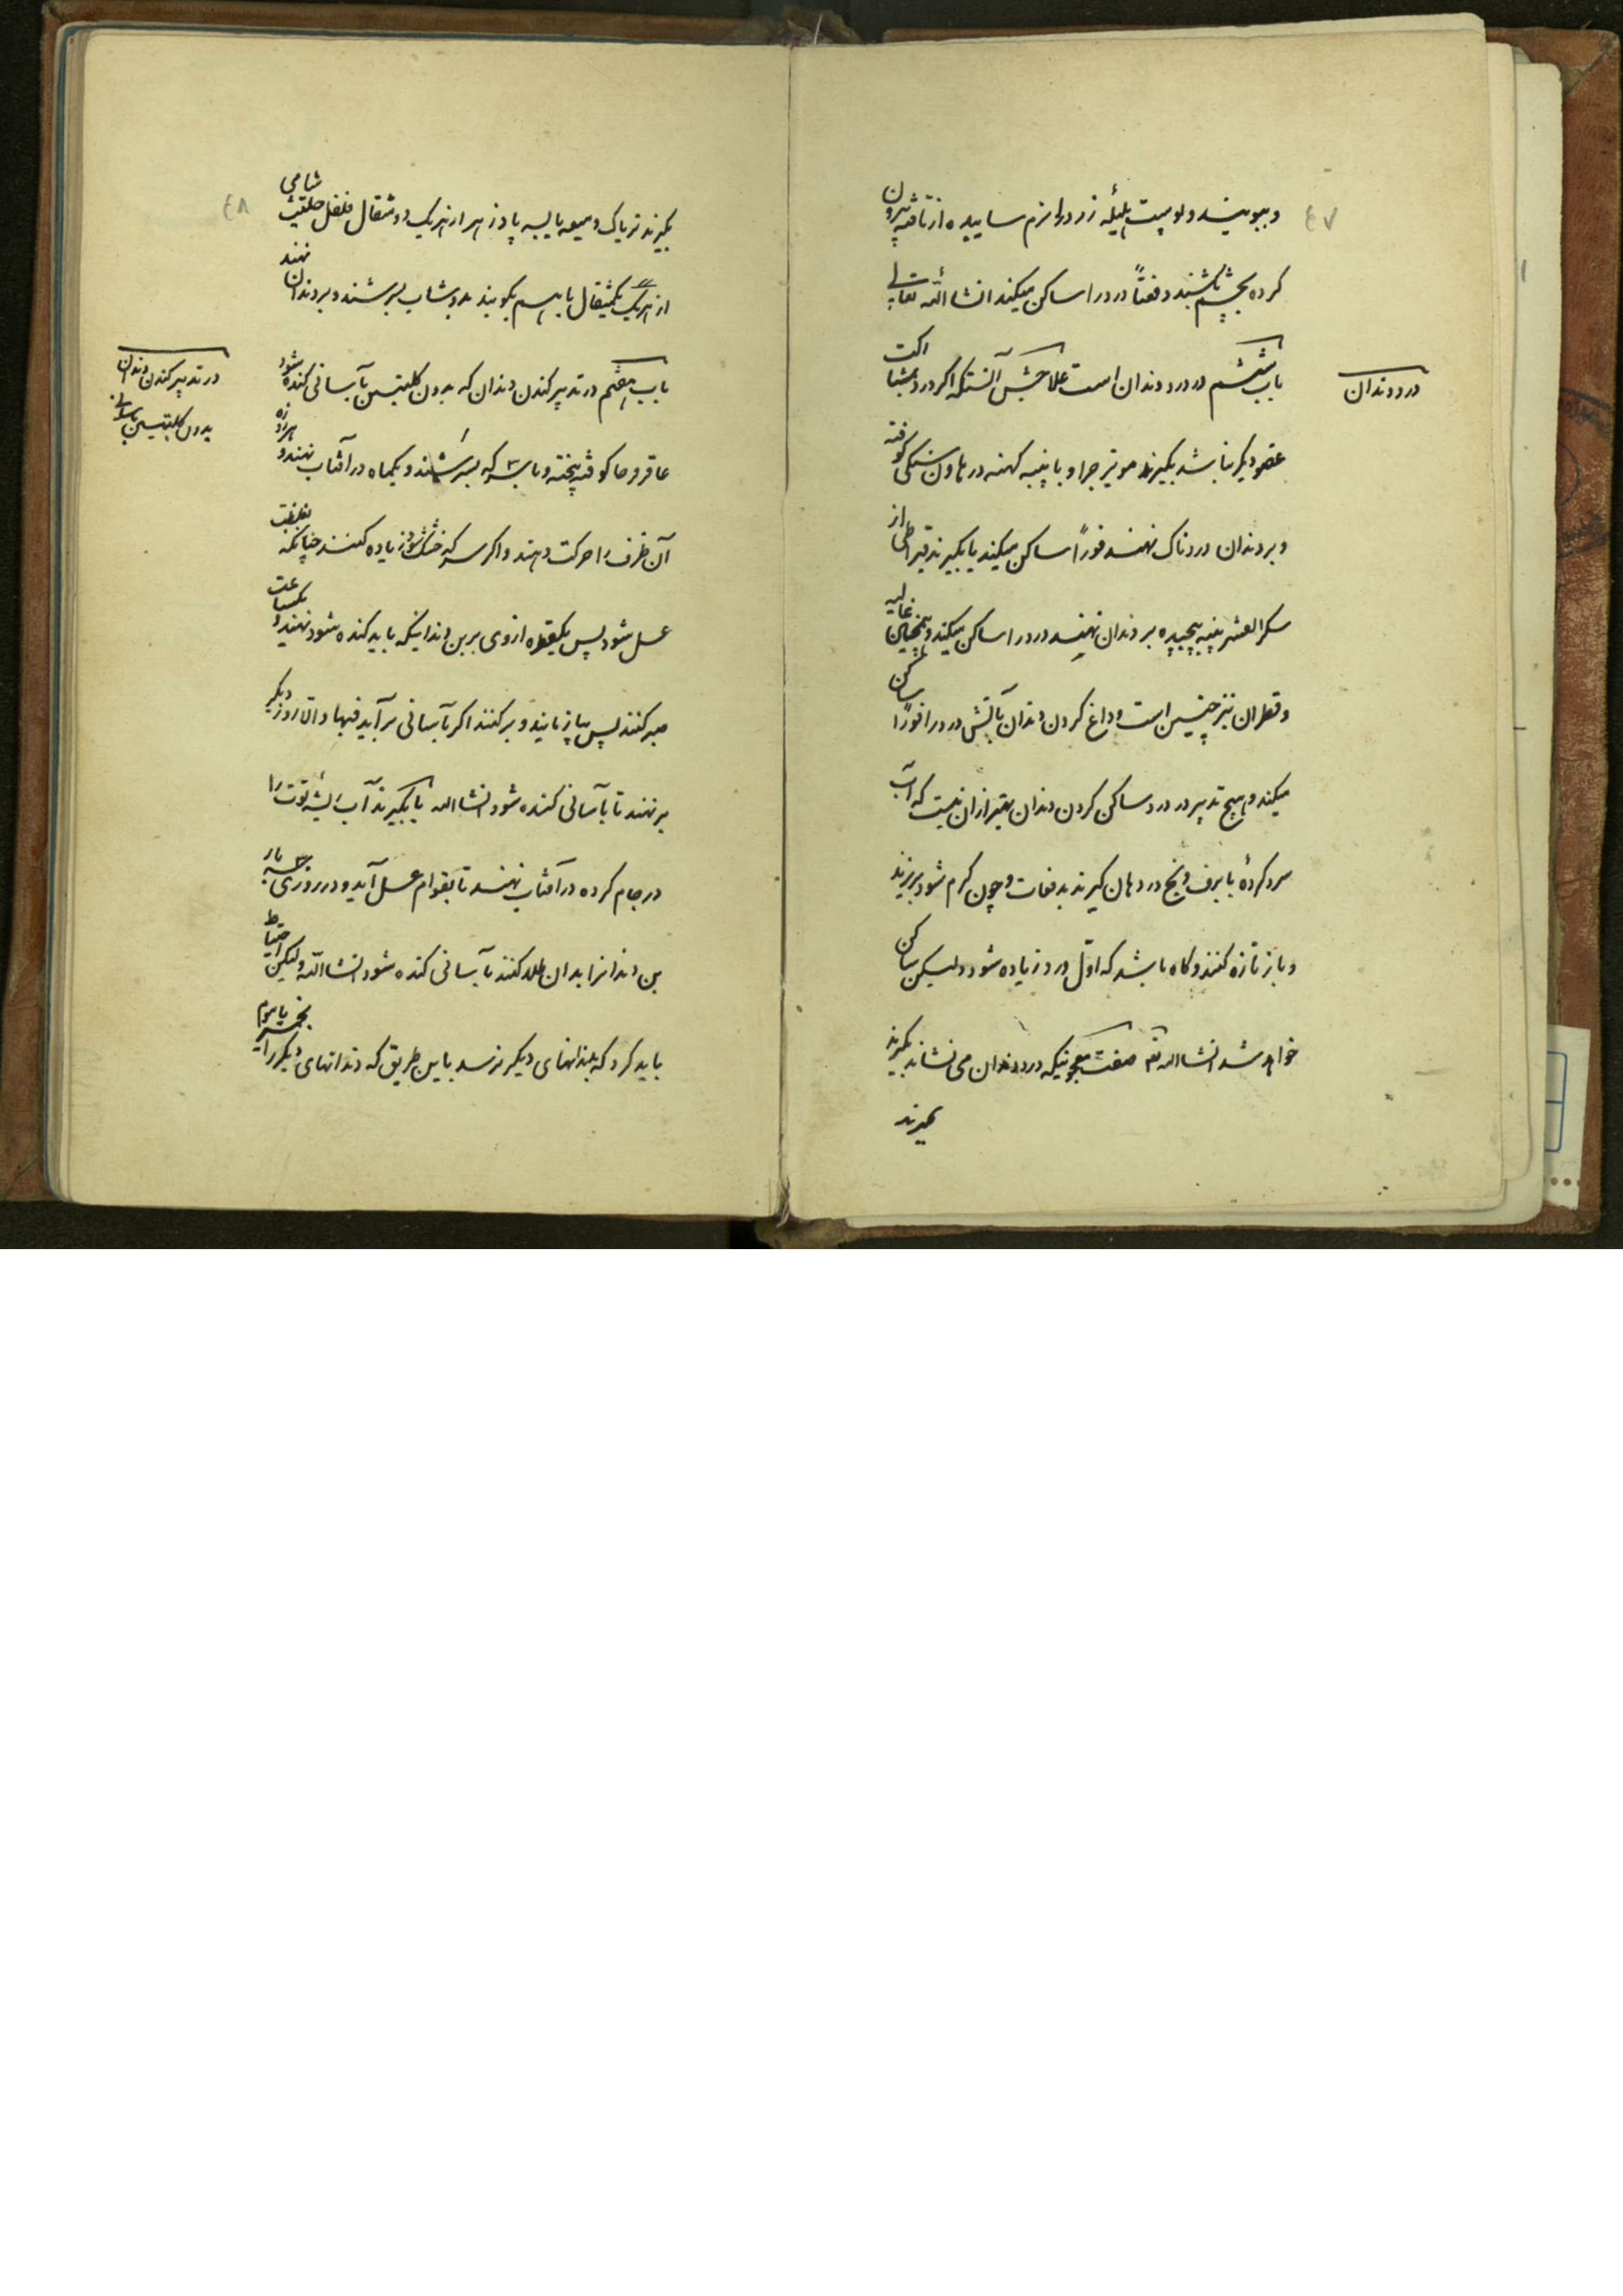 ٤٧
و ببویند و پوست هلیله زرد را نرم ساییده از تافته بیرون
کرده بچشم کشند دفعتاً درد را ساکن میکند انشاءالله تعالی
درد دندان
باب ششم در درد دندان است علاجش آنستکه اگر درد بمشارکت
عضو دیگر نباشد بگیرند مویزجرا و با پنبه کهنه در هاون سنگی کوفته
و بر دندان دردناک نهند فوراً ساکن میکند یا بگیرند قیراطی از
سکرالعشر پنبه پیچیده بر دندان نهند درد را ساکن میکند و همچنین غالیه
و قطران نیز چنین است و داغ کردن دندان بآتش درد را فوراً ساکن
میکند و هیچ تدبیر در درد ساکن کردن دندان بهتر از ان نیست که آب
سرد کرده با برف و یخ در دهان گیرند بدفعات و چون گرم شود بریزند
و باز تازه کنند و گاه باشد که اوّل درد زیاده شود ولیکن ساکن
خواهد شد انشاالله تع صفت معجونیکه درد دندان می نشاند بگیرند
بگیرند
٤٨
بگیرند تریاک و میعه یابسه پادزهر از هریک دو مثقال فلفل حلتیت شامی
از هریک یکمثقال باهم بکوبند بدوشاب بسرشند و بر دندان نهند
در تدبیر کندن دندان
بدون کلبتین بآسانی
باب هفتم در تدبیر کندن دندان که بدون کلبتین بآسانی کنده شود
عاقرقرحا کوفته پخته و با سرکه بسرشند و یکماه در آفتاب نهند و هر روزه
آن ظرف را حرکت دهند و اگر سرکه خشک شود زیاده کنند چنانکه بغلظت
عسل شود پس یکقطره از وی بر بن دندانیکه باید کنده شود نهند و یکساعت
صبر کنند پس بیازمایند و برکنند اگر بآسانی برآید فبها و الا روز دیگر
برنهند تا بآسانی کنده شود انشاالله یا بگیرند آب ریشه توت را
در جام کرده در آفتاب نهند تا بقوام عسل آید و در روزی سه بار
بن دندانرا بدان طلا کنند بآسانی کنده شود انشاالله ولیکن احتیاط
باید کرد که بدندانهای دیگر نرسد باین طریق که دندانهای دیگر را بخمیر یا موم